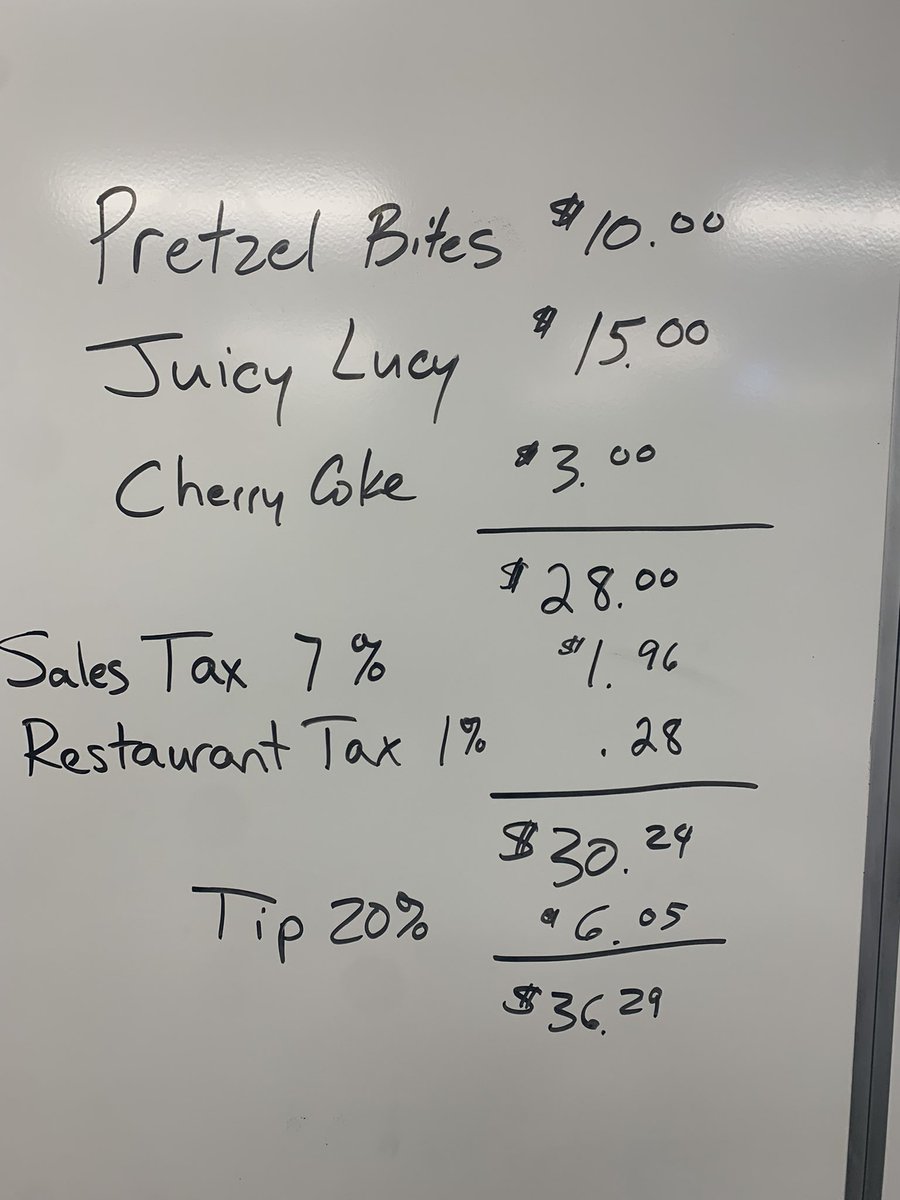 Pretzel Bites $10.00
Juicy Lucy $15.00
Cherry Coke $3.00
$28.00
Sales Tax 7% $1.96
Restaurant Tax 1% .28
$30.24
Tip 20% $6.05
$36.29